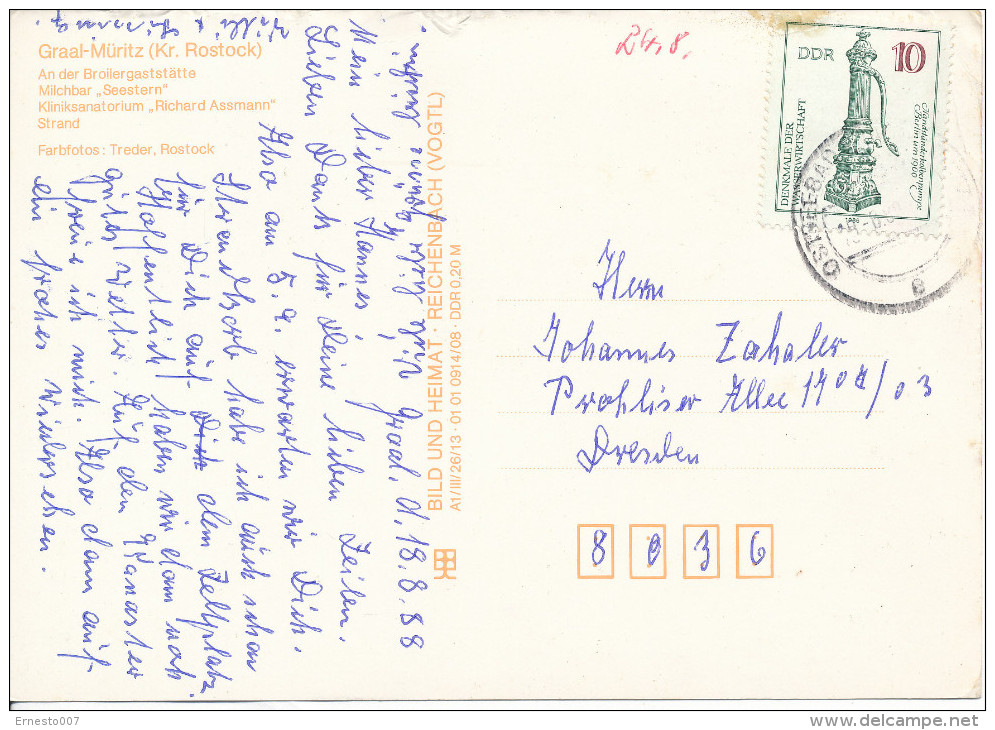 Graal-Müritz (Kr. Rostock)
An der Broilergaststätte
Milchbar „Seestern"
Kliniksanatorium „Richard Assmann"
Strand
Farbfotos: Treder, Rostock
BILD UND HEIMAT · REICHENBACH (VOGTL)
A1/III/26/13 · 01 01 0914/08 · DDR 0,20 M
Graal, d. 18.8.88
Mein lieber Hannes!
Lieben Dank für Deine lieben Zeilen.
Also am 5.9. erwarten wir Dich.
Strandkorb habe ich auch schon
für Dich auf dem Zeltplatz.
Hoffentlich haben wir dann noch
gutes Wetter. Auf den
freue ich mich. Also dann auf
ein frohes Wiedersehen.
24.8.
DDR
10
DENKMALE DER
WASSERWIRTSCHAFT
Handschwengelpumpe
Berlin um 1900
1986
OSTSEEBAD
18.-8.
Herrn
Johannes Zahaler
Prohliser Allee 1704/03
Dresden
8036
Ernesto007
delcampe.net